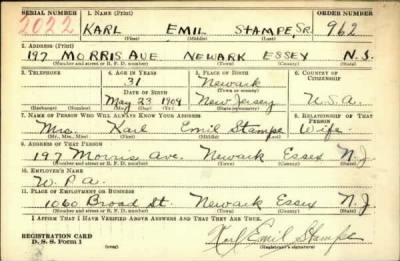 SERIAL NUMBER 1. NAME (Print) ORDER NUMBER
2022 KARL EMIL STAMPE, SR. 962
(First) (Middle) (Last)
2. ADDRESS (Print)
197 MORRIS AVE NEWARK ESSEX N.J.
(Number and street or R. F. D. number) (Town) (County) (State)
3. TELEPHONE 4. AGE IN YEARS 5. PLACE OF BIRTH 6. COUNTRY OF CITIZENSHIP
31 Newark
DATE OF BIRTH (Town or county)
May 23 1909 New Jersey U.S.A.
(Exchange) (Number) (Mo.) (Day) (Yr.) (State or country)
7. NAME OF PERSON WHO WILL ALWAYS KNOW YOUR ADDRESS 8. RELATIONSHIP OF THAT PERSON
Mrs. Karl Emil Stampe Wife
(Mr., Mrs., Miss) (First) (Middle) (Last)
9. ADDRESS OF THAT PERSON
197 Morris Ave. Newark Essex N.J.
(Number and street or R. F. D. number) (Town) (County) (State)
10. EMPLOYER'S NAME
W.P.A.
11. PLACE OF EMPLOYMENT OR BUSINESS
1060 Broad St. Newark Essex N.J.
(Number and street or R. F. D. number) (Town) (County) (State)
I AFFIRM THAT I HAVE VERIFIED ABOVE ANSWERS AND THAT THEY ARE TRUE.
REGISTRATION CARD
D. S. S. Form 1 (over) Karl Emil Stampe
(Registrant's signature)